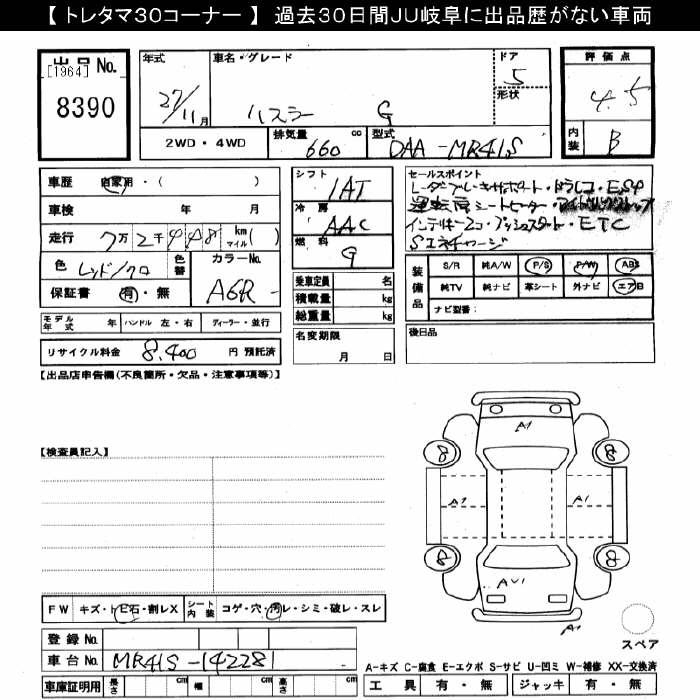 【 トレタマ30コーナー 】 過去30日間JU岐阜に出品歴がない車両
出品 No.
[1964]
8390
年式
27/11月
車名・グレード
ハスラー G
ドア
5
形状
評価点
4.5
内装
B
2WD・4WD
排気量 cc
660
型式
DAA-MR41S
車歴 自家用・( )
車検 年 月
走行 7万2千948 km マイル( )
色 レッド/クロ
色替
カラーNo.
A6R-
保証書 有・無
シフト
1AT
冷房
AAC
燃料
G
乗車定員 名
積載量 kg
総重量 kg
名変期限
月 日
セールスポイント
レーダーブレーキサポート・ドラレコ・ESP
運転席シートヒーター・アイドリングストップ
インテリキー2コ・プッシュスタート・ETC
Sエネチャージ
装備品
S/R 純A/W P/S P/W ABS
純TV 純ナビ 革シート 外ナビ エアB
ナビ型番:
モデル年式 年 ハンドル 左・右 ディーラー・並行
リサイクル料金 8,400 円 預託済
後日品
【出品店申告欄(不良箇所・欠品・注意事項等)】
【検査員記入】
A1
8 8
A1 A1
8 8
AU1
A1
FW キズ・トビ石・割レX
シート内装 コゲ・穴・汚レ・シミ・破レ・スレ
登録 No.
車台 No. MR41S-142281
スペア
A-キズ C-腐食 E-エクボ S-サビ U-凹ミ W-補修 XX-交換済
車庫証明用 長さ cm 幅 cm 高さ cm
工具 有・無 ジャッキ 有・無